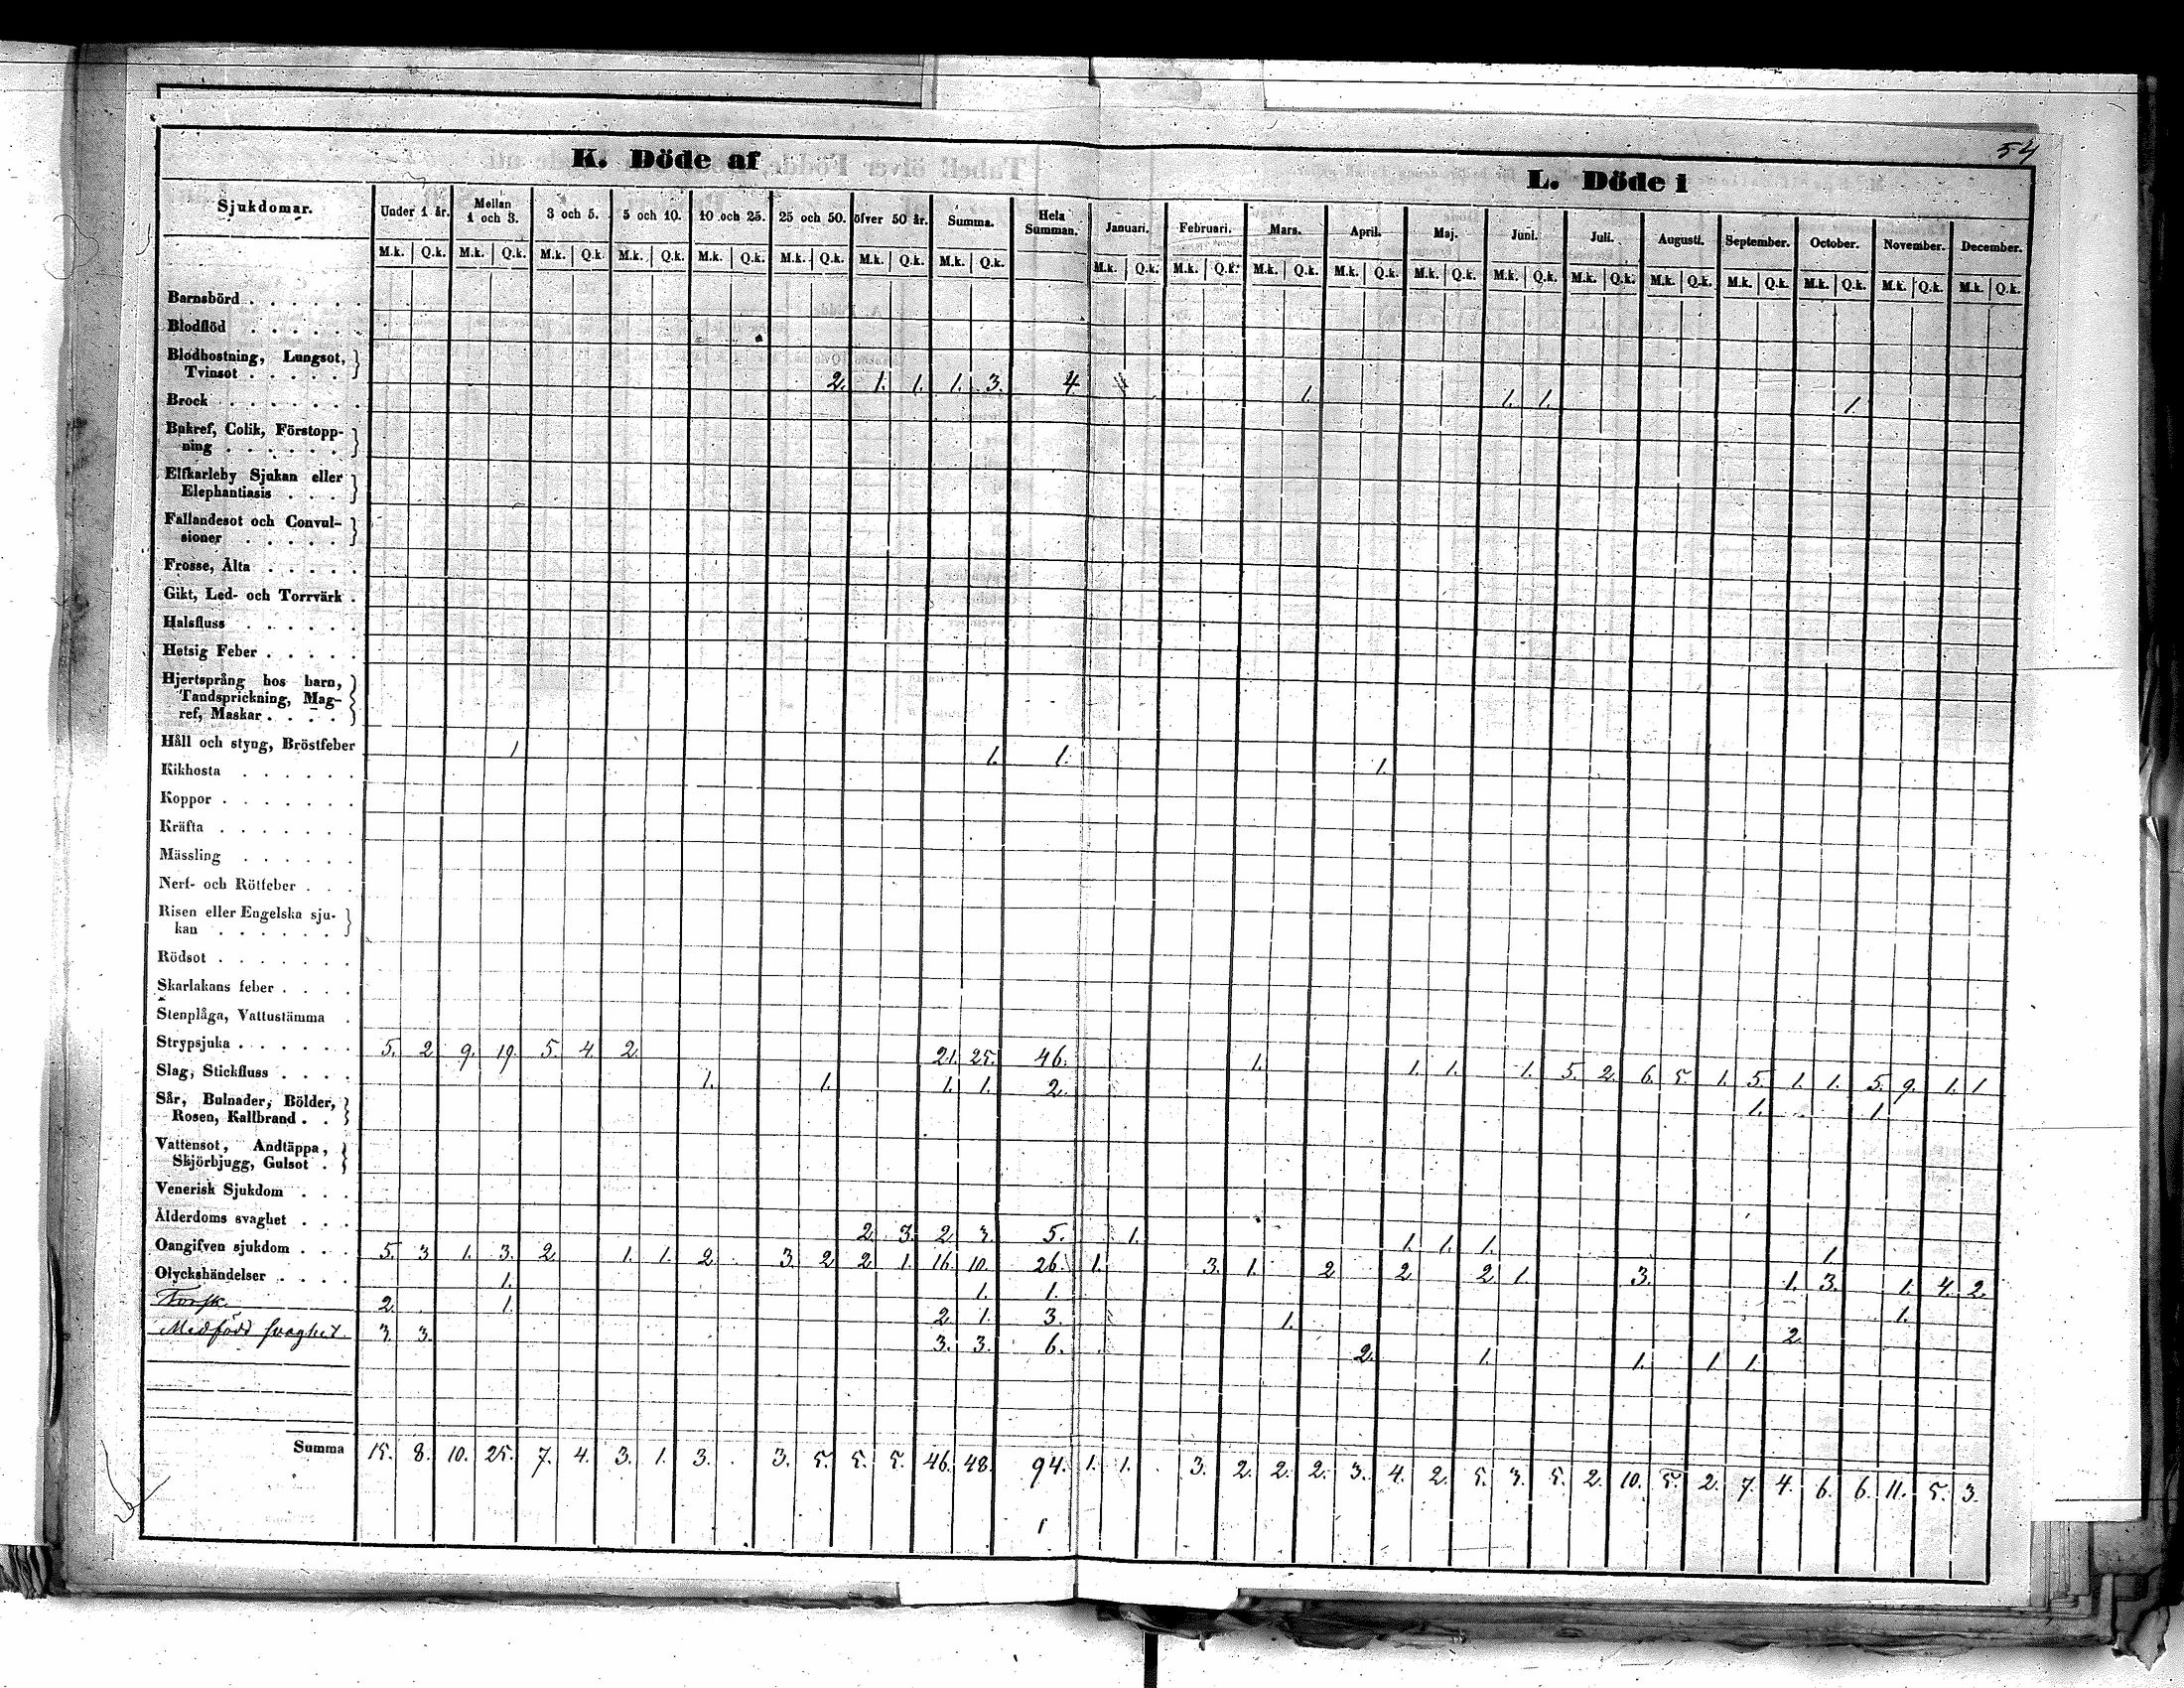 54
K. Döde af
L. Döde i
Sjukdomar. Under 1 år. Mellan 1 och 3. 3 och 5. 5 och 10. 10 och 25. 25 och 50. öfver 50 år. Summa. Hela Summan. Januari. Februari. Mars. April. Maj. Juni. Juli. Augusti. September. October. November. December.
M.k. Q.k. M.k. Q.k. M.k. Q.k. M.k. Q.k. M.k. Q.k. M.k. Q.k. M.k. Q.k. M.k. Q.k. M.k. Q.k. M.k. Q.k. M.k. Q.k. M.k. Q.k. M.k. Q.k. M.k. Q.k. M.k. Q.k. M.k. Q.k. M.k. Q.k. M.k. Q.k. M.k. Q.k. M.k. Q.k.
Barnsbörd
Blodflöd
Blodhostning, Lungsot,
Tvinsot 2. 1. 1. 1. 3. 4 1. 1. 1. 1.
Brock
Bukref, Colik, Förstopp-
ning
Elfkarleby Sjukan eller
Elephantiasis
Fallandesot och Convul-
sioner
Frosse, Älta
Gikt, Led- och Torrvärk
Halsfluss
Hetsig Feber
Hjertsprång hos barn,
Tandsprickning, Mag-
ref, Maskar
Håll och styng, Bröstfeber 1 1. 1. 1.
Kikhosta
Koppor
Kräfta
Mässling
Nerf- och Rötfeber
Risen eller Engelska sju-
kan
Rödsot
Skarlakans feber
Stenplåga, Vattustämma
Strypsjuka 5. 2 9. 19. 5. 4. 2. 21. 25. 46. 1. 1. 1. 1. 5. 2. 6. 5. 1. 5. 1. 1. 5. 9. 1. 1
Slag, Stickfluss 1. 1. 1. 1. 2. 1. 1.
Sår, Bulnader, Bölder,
Rosen, Kallbrand
Vattensot, Andtäppa,
Skjörbjugg, Gulsot
Venerisk Sjukdom
Ålderdoms svaghet 2. 3. 2. 3. 5. 1. 1. 1. 1. 1.
Oangifven sjukdom 5. 3 1. 3. 2. 1. 1. 2. 3. 2 2. 1. 16. 10. 26. 1. 3. 1. 2 2 2. 1. 3. 1. 3. 1. 4. 2.
Olyckshändelser 1. 1. 1. 1.
Torsk. 2. 1. 2. 1. 3. 1. 2.
Medfödd svaghet. 3. 3. 3. 3. 6. 2. 1. 1. 1. 1.
Summa 15. 8. 10. 25. 7. 4. 3. 1. 3. 3. 5. 5. 5. 46. 48. 94. 1. 1. 3. 2. 2. 2. 3. 4. 2. 5. 3. 5. 2. 10. 5. 2. 7. 4. 6. 6. 11. 5. 3.